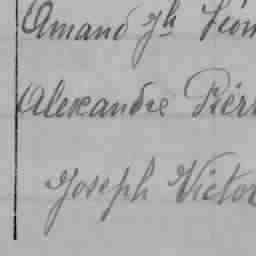 Amand Jh Léon
Alexandre Pierr
Joseph Victor